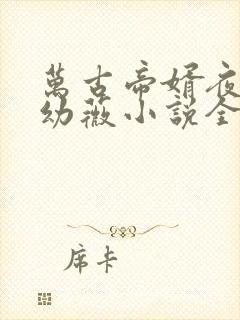 萬古帝婿夜
幼薇小說全
席卡